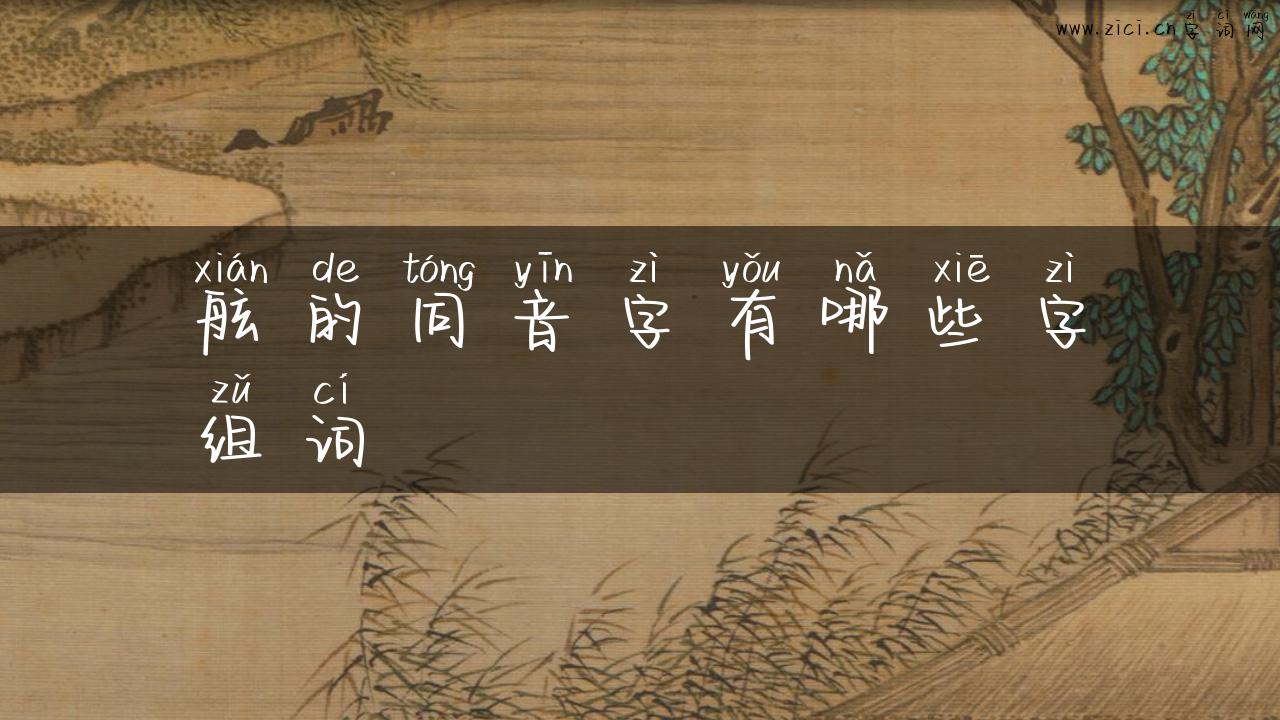 zì cí wǎng
www.zici.cn字词网
xián de tóng yīn zì yǒu nǎ xiē zì
舷的同音字有哪些字
zǔ cí
组词